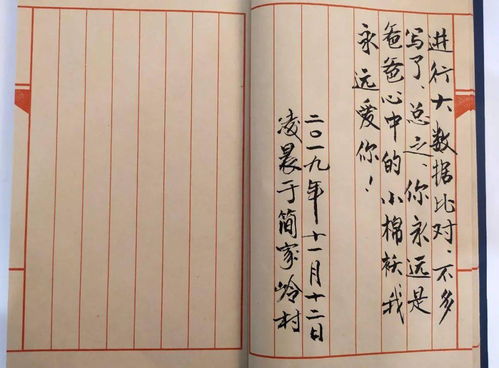 进行大数据比对、不多
写了、总之、你永远是
爸爸心中的小棉袄我
永远爱你！
二〇一九年十一月十二日
凌晨于简家岭村